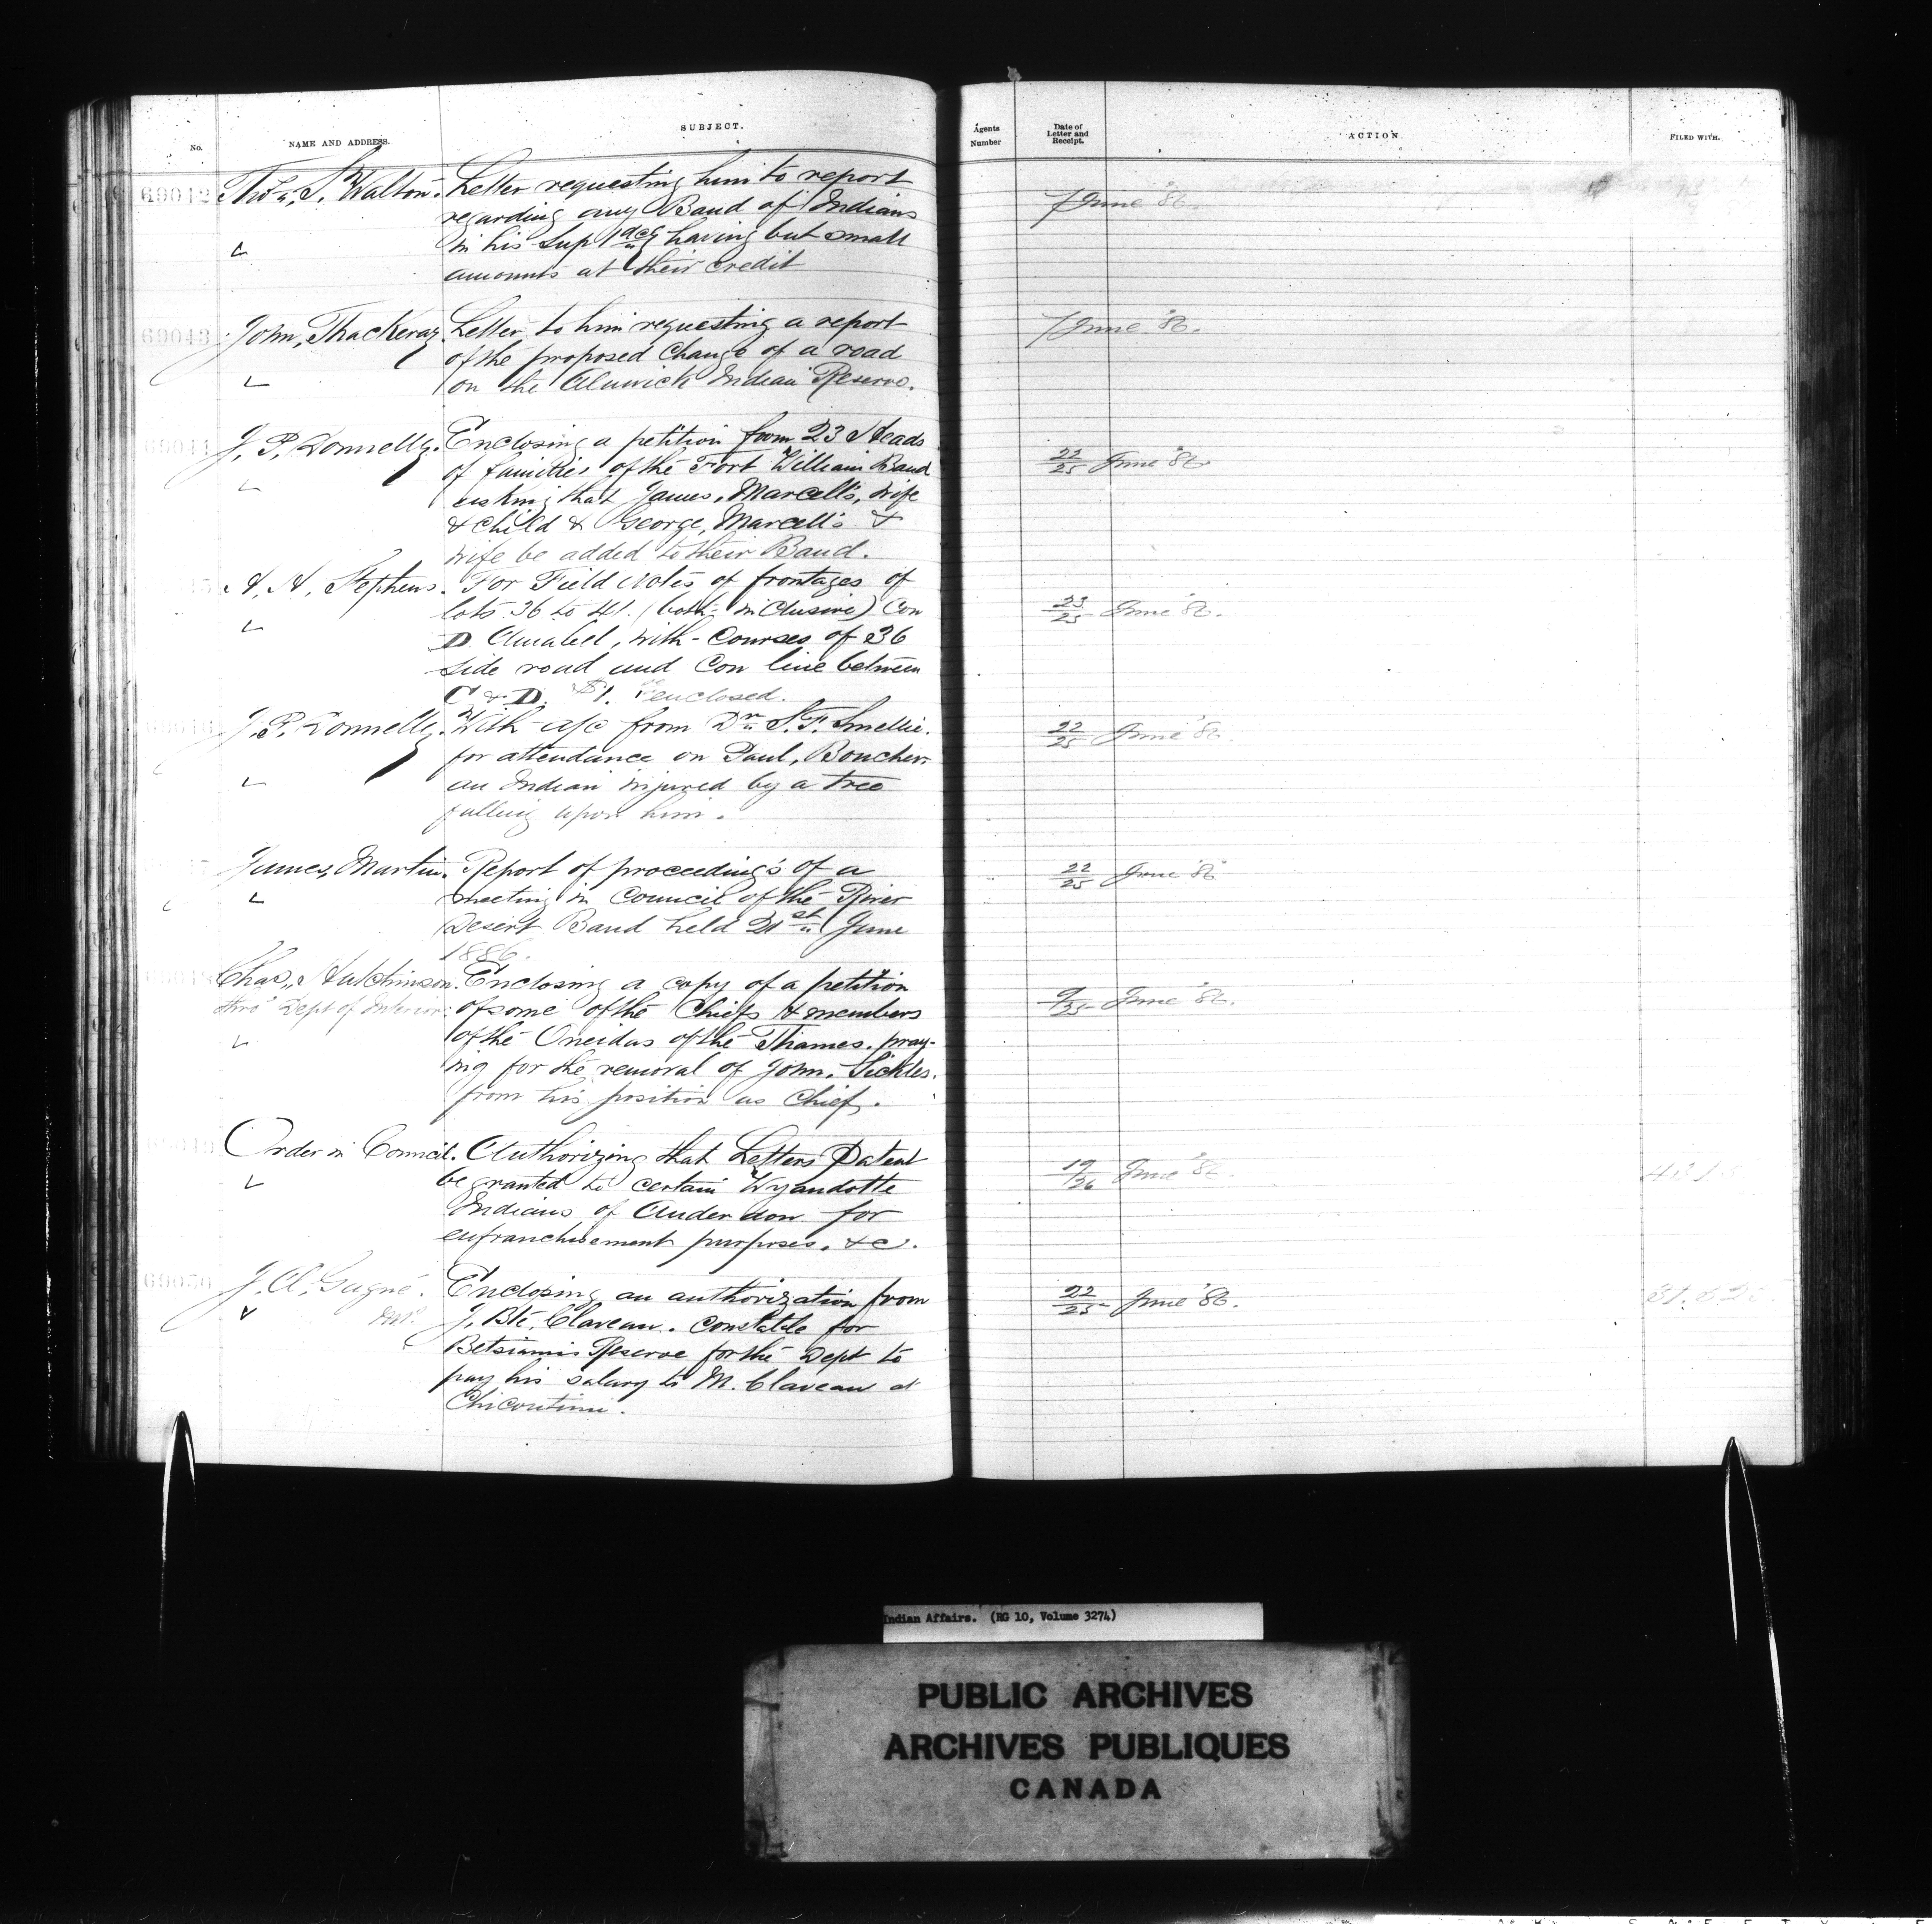 No.
NAME AND ADDRESS.
SUBJECT.
Agents Number
Date of Letter and Receipt.
ACTION.
FILED WITH.
69042 Thos. S. Walton. Letter requesting him to report 7 June '86.
regarding any Band of Indians
in his Sup'dcy having but small
amounts at their credit
69043 John, Thackeray Letter to him requesting a report 7 June '86.
of the proposed change of a road
on the Alnwick Indian Reserve.
69044 J. P. Donnelly. Enclosing a petition from 23 Heads 22/25 June '86
of families of the Fort William Band
asking that James, Marcell's, wife
& child & George, Marcell's &
wife be added to their Band.
A. A. Stephens. For Field notes of frontages of
lots 36 to 41. (both inclusive) Con 23/25 June '86.
D Amabel, with courses of 36
side road and Con line between
C & D. $1. enclosed.
J. P. Donnelly. With a/c from Dr. S. F. Smellie. 22/25 June '86.
for attendance on Paul, Boucher,
an Indian injured by a tree
falling upon him.
James, Martin. Report of proceedings of a 22/25 June '86
meeting in Council of the River
Desert Band held 21st June
1886.
Chas, Hutchinson. Enclosing a copy of a petition
thro' Dept of Interior. of some of the Chiefs & members 9/25 June '86.
of the Oneidas of the Thames. pray-
ing for the removal of John, Sickles.
from his position as Chief.
69049 Order in Council. Authorizing that Letters Patent 19/26 June '86.
be granted to certain Wyandotte
Indians of Anderdon for
enfranchisement purposes, &c.
69050 J. A. Gagné. Enclosing an authorization from 22/25 June '86.
J. Bte, Claveau. Constable for
Betsiamis Reserve for the Dept to
pay his salary to M. Claveau at
Chicoutimi.
Indian Affairs. (RG 10, Volume 3274)
PUBLIC ARCHIVES
ARCHIVES PUBLIQUES
CANADA